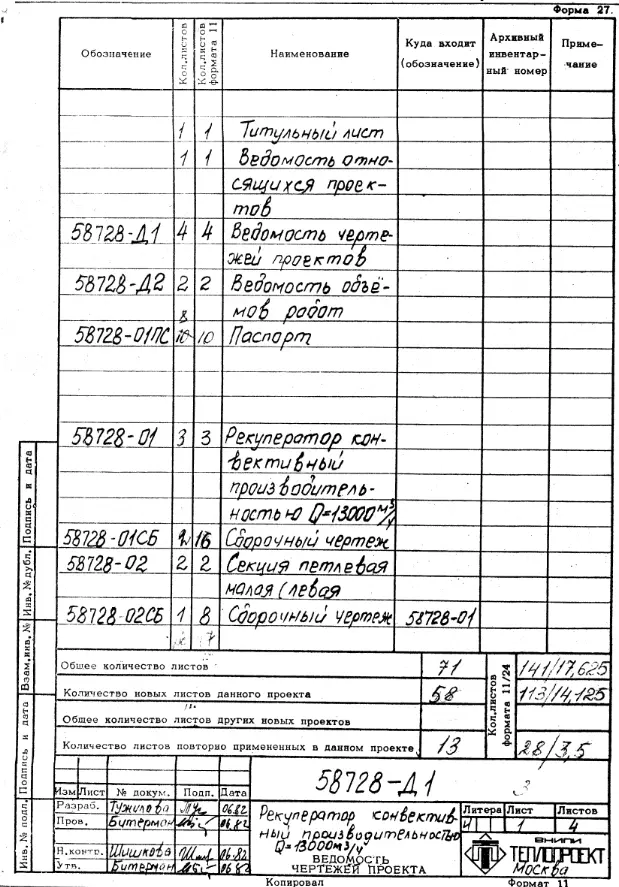 Форма 27.
Обозначение
Кол.листов
Кол.листов формата 11
Наименование
Куда входит (обозначение)
Архивный инвентарный номер
Примечание
1 1 Титульный лист
1 1 Ведомость отно-
сящихся проек-
тов
58728-Д1 4 4 Ведомость черте-
жей проектов
58728-Д2 2 2 Ведомость объё-
8 мов работ
58728-01ПС 10 10 Паспорт
58728-01 3 3 Рекуператор кон-
вективный
производитель-
ностью Q=13000 м³/ч
58728-01СБ 2 16 Сборочный чертеж
58728-02 2 2 Секция петлевая
малая (левая
58728-02СБ 1 8 Сборочный чертеж 58728-01
2 7
Общее количество листов 71 141/17,625
Количество новых листов данного проекта 58 113/14,125
Общее количество листов других новых проектов
Количество листов повторно примененных в данном проекте 13 28/3,5
Кол.листов формата 11/24
Подпись и дата
Инв.№ дубл.
Взам.инв.№
Подпись и дата
Инв.№ подл.
58728-Д1 3
Изм Лист № докум. Подп. Дата
Разраб. Тужилова 06.82
Пров. Битерман 06.82
Н.контр. Шишкова 06.82
Утв. Битерман 06.82
Рекуператор конвектив-
ный производительностью
Q=13000м3/ч
ВЕДОМОСТЬ
ЧЕРТЕЖЕЙ ПРОЕКТА
Литера Лист Листов
И 1 4
ВНИПИ
ТЕПЛОПРОЕКТ
Москва
Копировал Формат 11